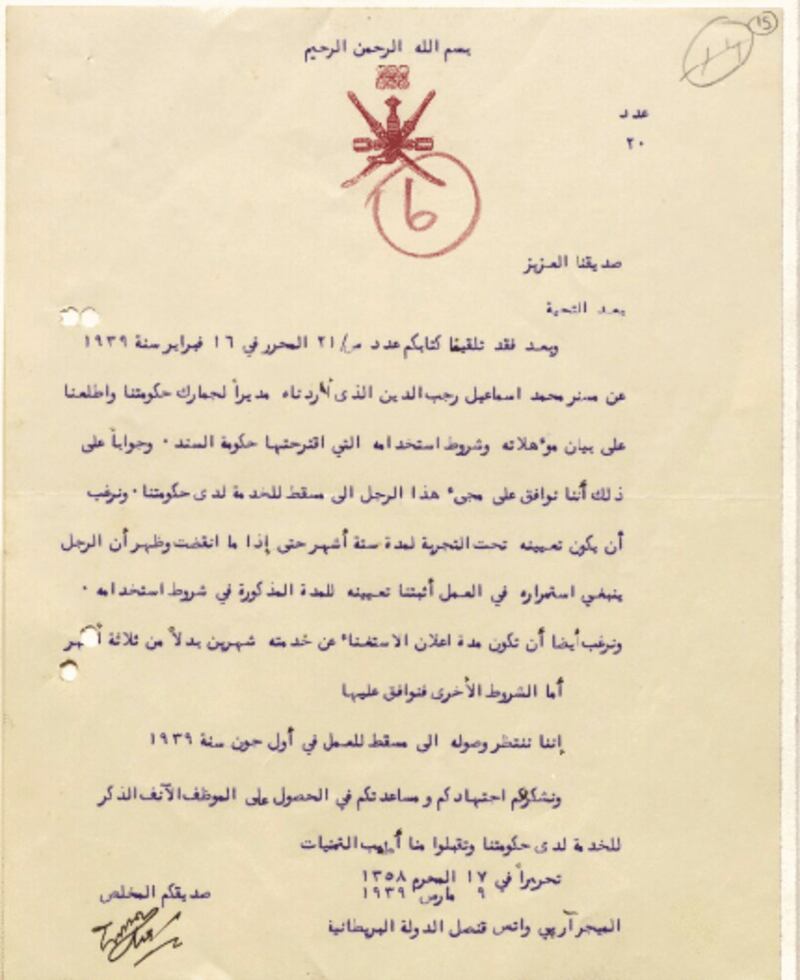 15
بسم الله الرحمن الرحيم
عدد
٢٠
6
صديقنا العزيز
بعد التحية
وبعد فقد تلقينا كتابكم عدد س/٢١ المحرر في ١٦ فبراير سنة ١٩٣٩
عن مستر محمد اسماعيل رجب الدين الذى أردناه مديراً لجمارك حكومتنا واطلعنا
على بيان موٴهلاته وشروط استخدامه التي اقترحتها حكومة السند ٠ وجواباً على
ذلك أننا نوافق على مجىء هذا الرجل الى مسقط للخدمة لدى حكومتنا ٠ ونرغب
أن يكون تعيينه تحت التجربة لمدة ستة أشهر حتى إذا ما انقضت وظهر أن الرجل
ينبغي استمراره في العمل أثبتنا تعيينه للمدة المذكورة في شروط استخدامه ٠
ونرغب أيضا أن تكون مدة اعلان الاستغناء عن خدمته شهرين بدلاً من ثلاثة أشهر
أما الشروط الأخرى فنوافق عليها
إننا ننتظر وصوله الى مسقط للعمل في أول جون سنة ١٩٣٩
ونشكركم اجتهادكم ومساعدتكم في الحصول على الموظف الآنف الذكر
للخدمة لدى حكومتنا وتقبلوا منا أطيب التمنيات
تحريراً في ١٧ المحرم ١٣٥٨
٩ مارس ١٩٣٩
صديقكم المخلص
الميجر آرپي واتس قنصل الدولة البريطانية